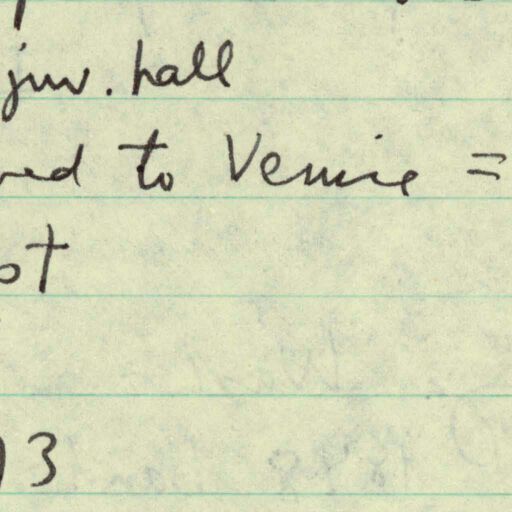 juv. hall
to Venice =
3